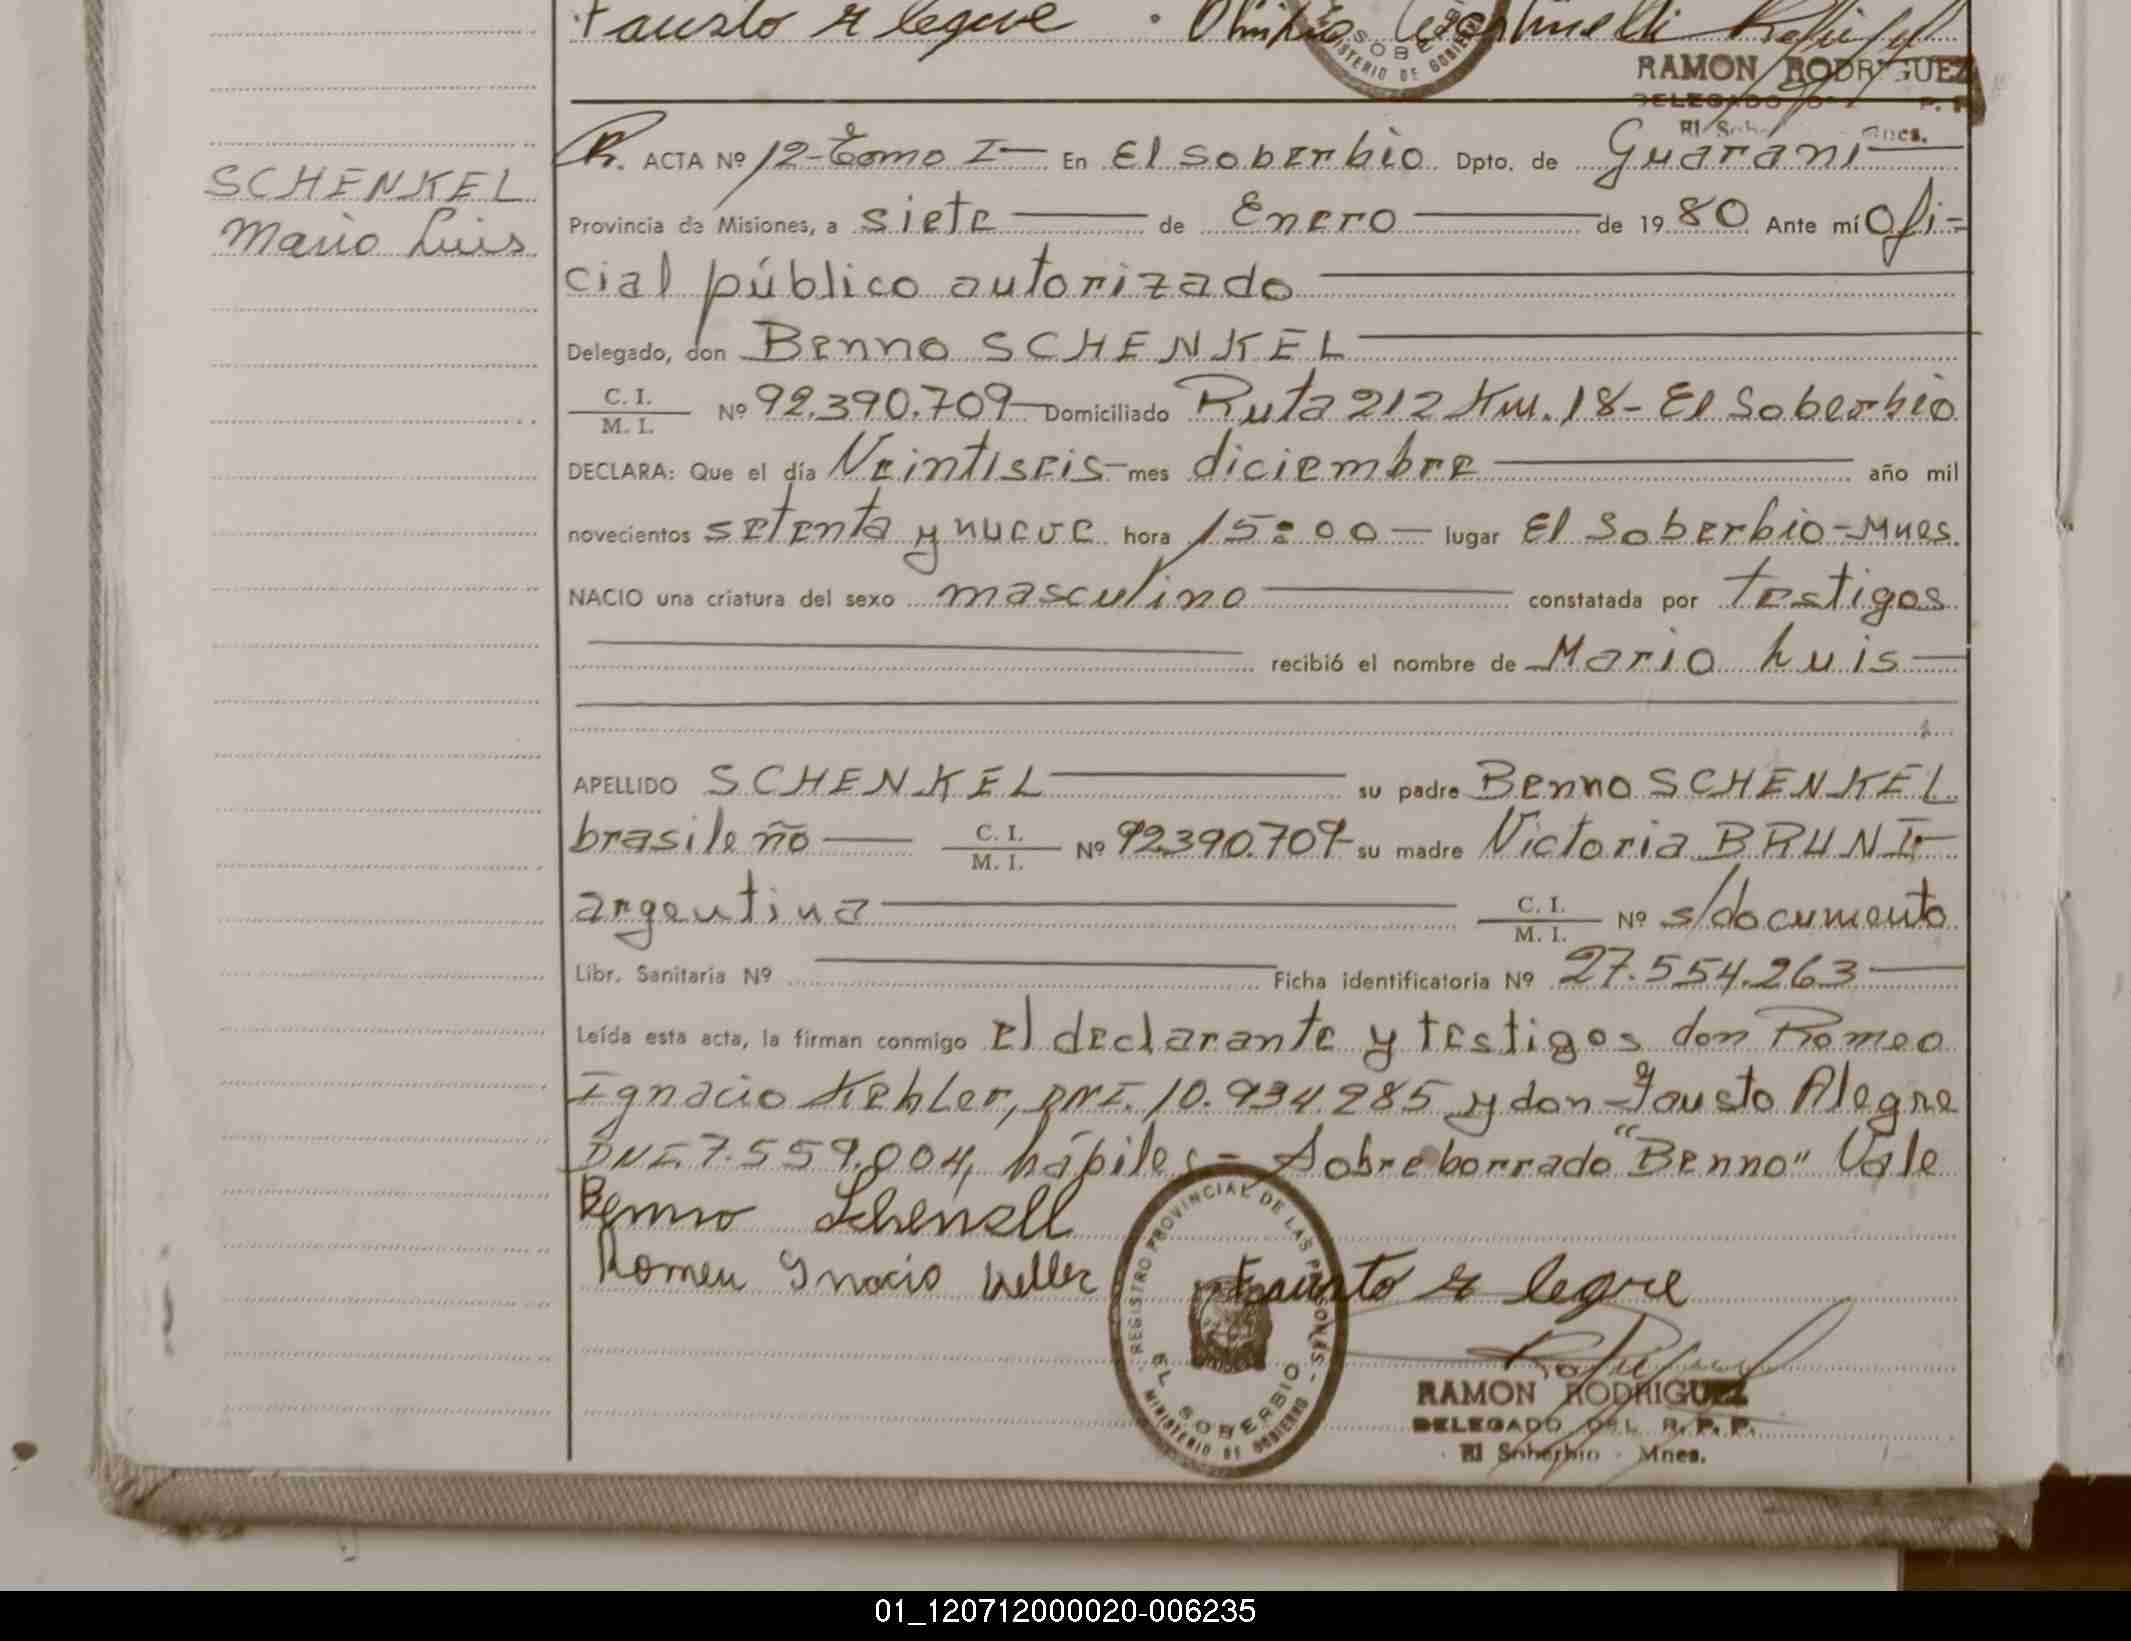 Fausto Alegre
SOBERBIO
MINISTERIO DE GOBIERNO
RAMON RODRIGUEZ
DELEGADO
Mnes.
SCHENKEL
Mario Luis
R. ACTA Nº 12-Tomo I— En El soberbio Dpto. de Guarani—
Provincia de Misiones, a siete — de Enero — de 1980 Ante mí Ofi-
cial público autorizado —
Delegado, don Benno SCHENKEL —
C. I.
M. I. Nº 92.390.709— Domiciliado Ruta 212 Km. 18- El Soberbio
DECLARA: Que el día Veintiseis— mes diciembre — año mil
novecientos setenta y nueve hora 15:00— lugar El Soberbio-Mnes.
NACIO una criatura del sexo masculino — constatada por testigos
— recibió el nombre de Mario Luis—
APELLIDO SCHENKEL — su padre Benno SCHENKEL
brasileño — C. I.
M. I. Nº 92.390.709- su madre Victoria BRUNI—
argentina — C. I.
M. I. Nº s/documento
Libr. Sanitaria Nº — Ficha identificatoria Nº 27.554.263—
Leída esta acta, la firman conmigo el declarante y testigos don Romeo
Ignacio Kehler, DNI. 10.934.285 y don Fausto Alegre
DNI.7.559.004, hábiles.- Sobreborrado "Benno" Vale
Benno Schenkell
Romeu Ignacio Keller Fausto Alegre
REGISTRO PROVINCIAL DE LAS PERSONAS
EL SOBERBIO
MINISTERIO DE GOBIERNO
RAMON RODRIGUEZ
DELEGADO DEL R. P. P.
El Soberbio - Mnes.
01_120712000020-006235